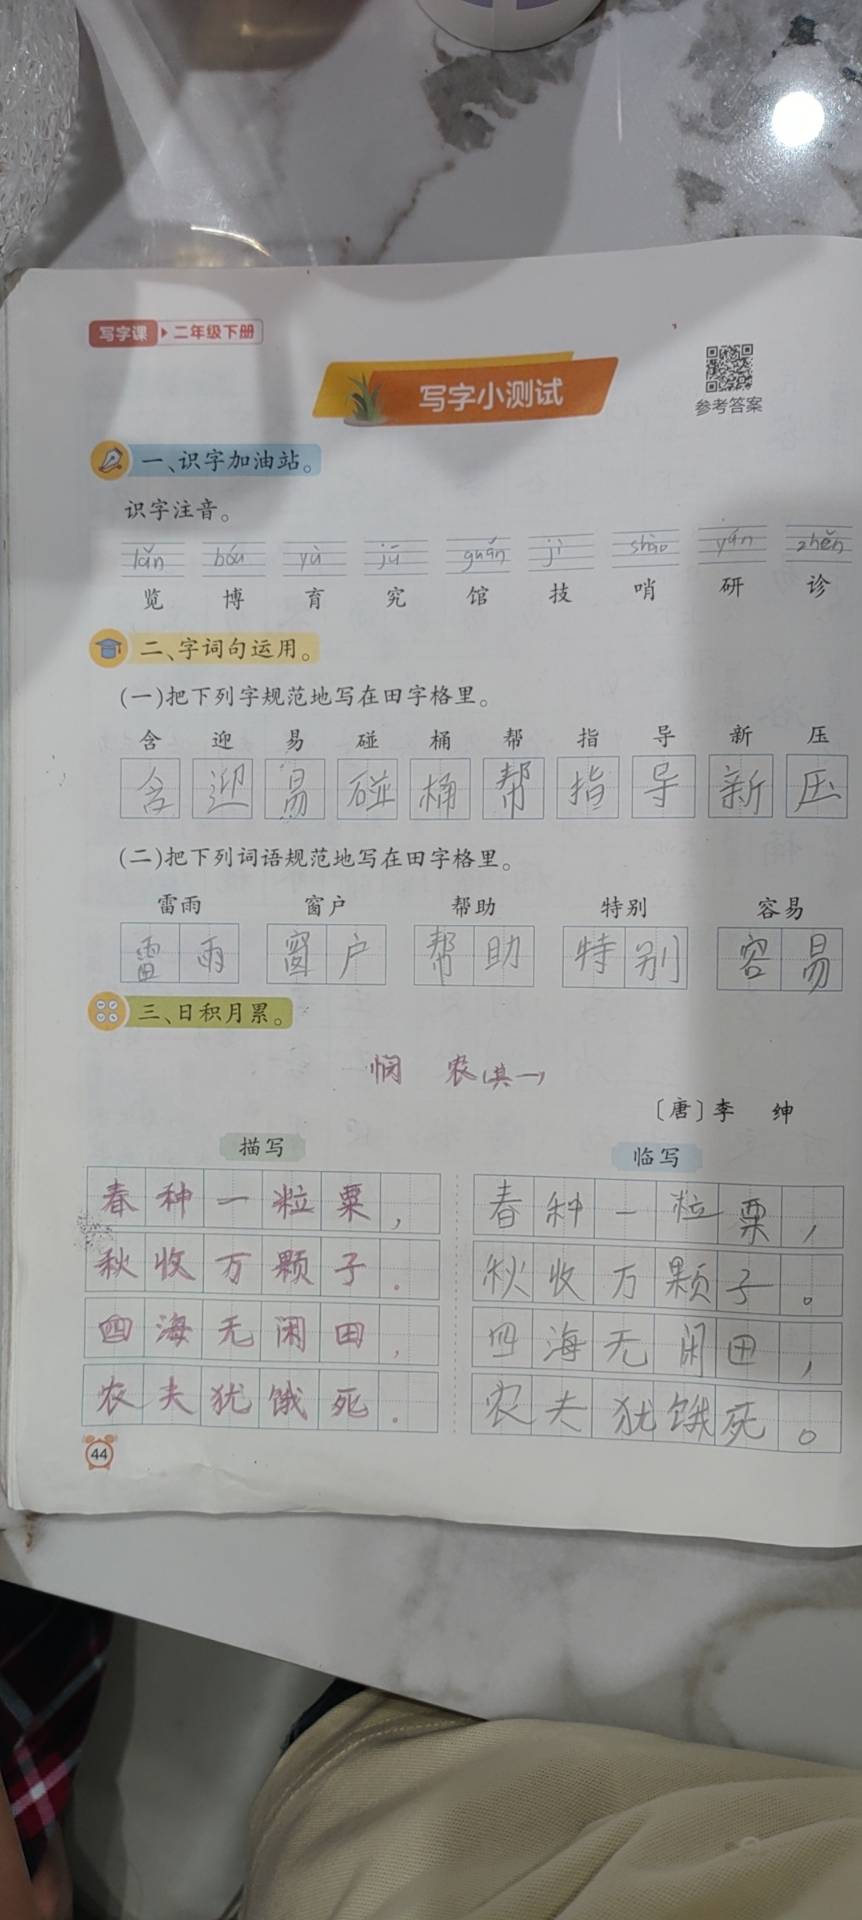 写字课 二年级下册
写字小测试
参考答案
一、识字加油站。
识字注音。
lǎn bóu yù jū guǎn jì shào yán zhěn
览 博 育 究 馆 技 哨 研 诊
二、字词句运用。
(一)把下列字规范地写在田字格里。
含 迎 易 碰 桶 帮 指 导 新 压
含 迎 易 碰 桶 帮 指 导 新 压
(二)把下列词语规范地写在田字格里。
雷雨 窗户 帮助 特别 容易
雷雨 窗户 帮助 特别 容易
三、日积月累。
悯 农(其一)
〔唐〕李 绅
描写 临写
春种一粒粟, 春种一粒栗,
秋收万颗子. 秋收万颗子。
四海无闲田, 四海无闲田,
农夫犹饿死. 农夫犹饿死。
44